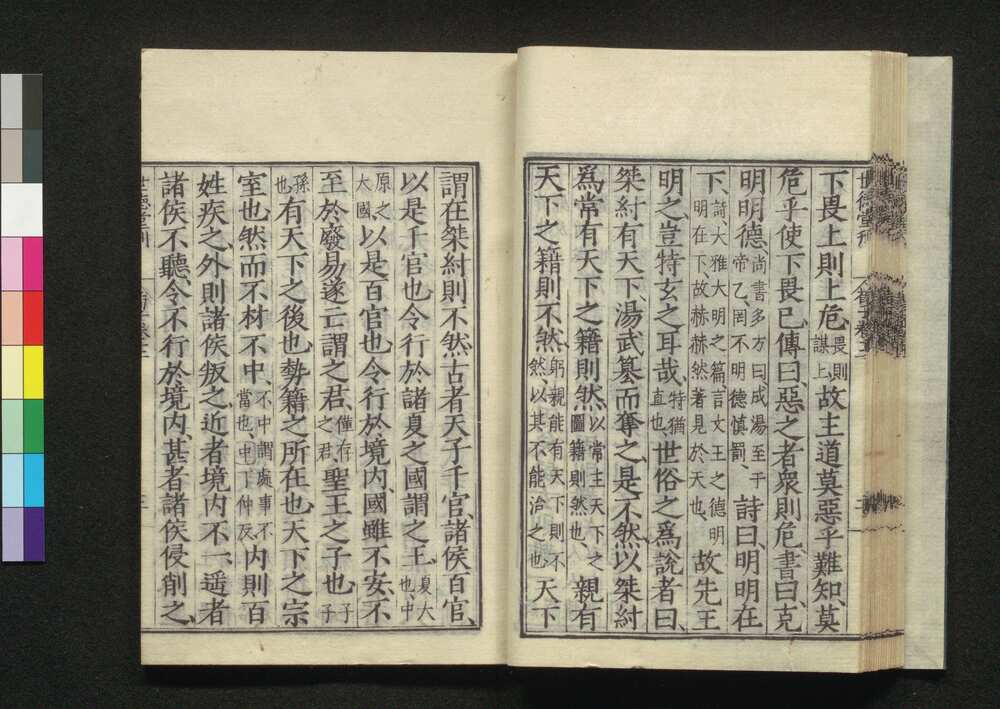 下畏上則上危畏則謀上故主道莫惡乎難知莫
危乎使下畏已傳曰惡之者衆則危書曰克
明明德尚書多方曰成湯至于帝乙罔不明德慎罰詩曰明明在
下詩大雅大明之篇言文王之德明明在下故赫赫然著見於天也故先王
明之豈特玄之耳哉特猶直也世俗之爲說者曰
桀紂有天下湯武簒而奪之是不然以桀紂
爲常有天下之籍則然以常主天下之圖籍則然也親有
天下之籍則不然躬親能有天下則不然以其不能治之也天下
謂在桀紂則不然古者天子千官諸侯百官
以是千官也令行於諸夏之國謂之王夏大也中
原之大國以是百官也令行於境内國雖不安不
至於廢易遂亡謂之君僅存之君聖王之子也子
孫也有天下之後也勢籍之所在也天下之宗
室也然而不材不中不中謂處事不當也中丁仲反内則百
姓疾之外則諸侯叛之近者境内不一遥者
諸侯不聽令不行於境内甚者諸侯侵削之